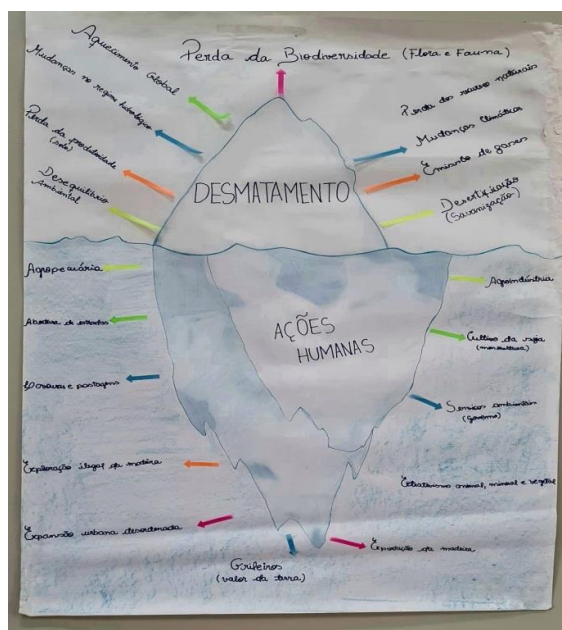 Perda da Biodiversidade (Flora e Fauna)
Aquecimento Global
Mudanças no regime hidrológico
Perda da produtividade
(solo)
Desequilíbrio
Ambiental
Perda dos recursos naturais
Mudanças climáticas
Emissão de gases
Desertificação
(Savanização)
DESMATAMENTO
Agropecuária
Abertura de estradas
e pastagens
Exploração ilegal da madeira
Expansão urbana desordenada
AÇÕES
HUMANAS
Agroindústria
Cultivo da soja
(monocultura)
Serviços ambientais
(governo)
Extrativismo animal, mineral e vegetal
Exportação da madeira
Grileiros
(valor da terra)